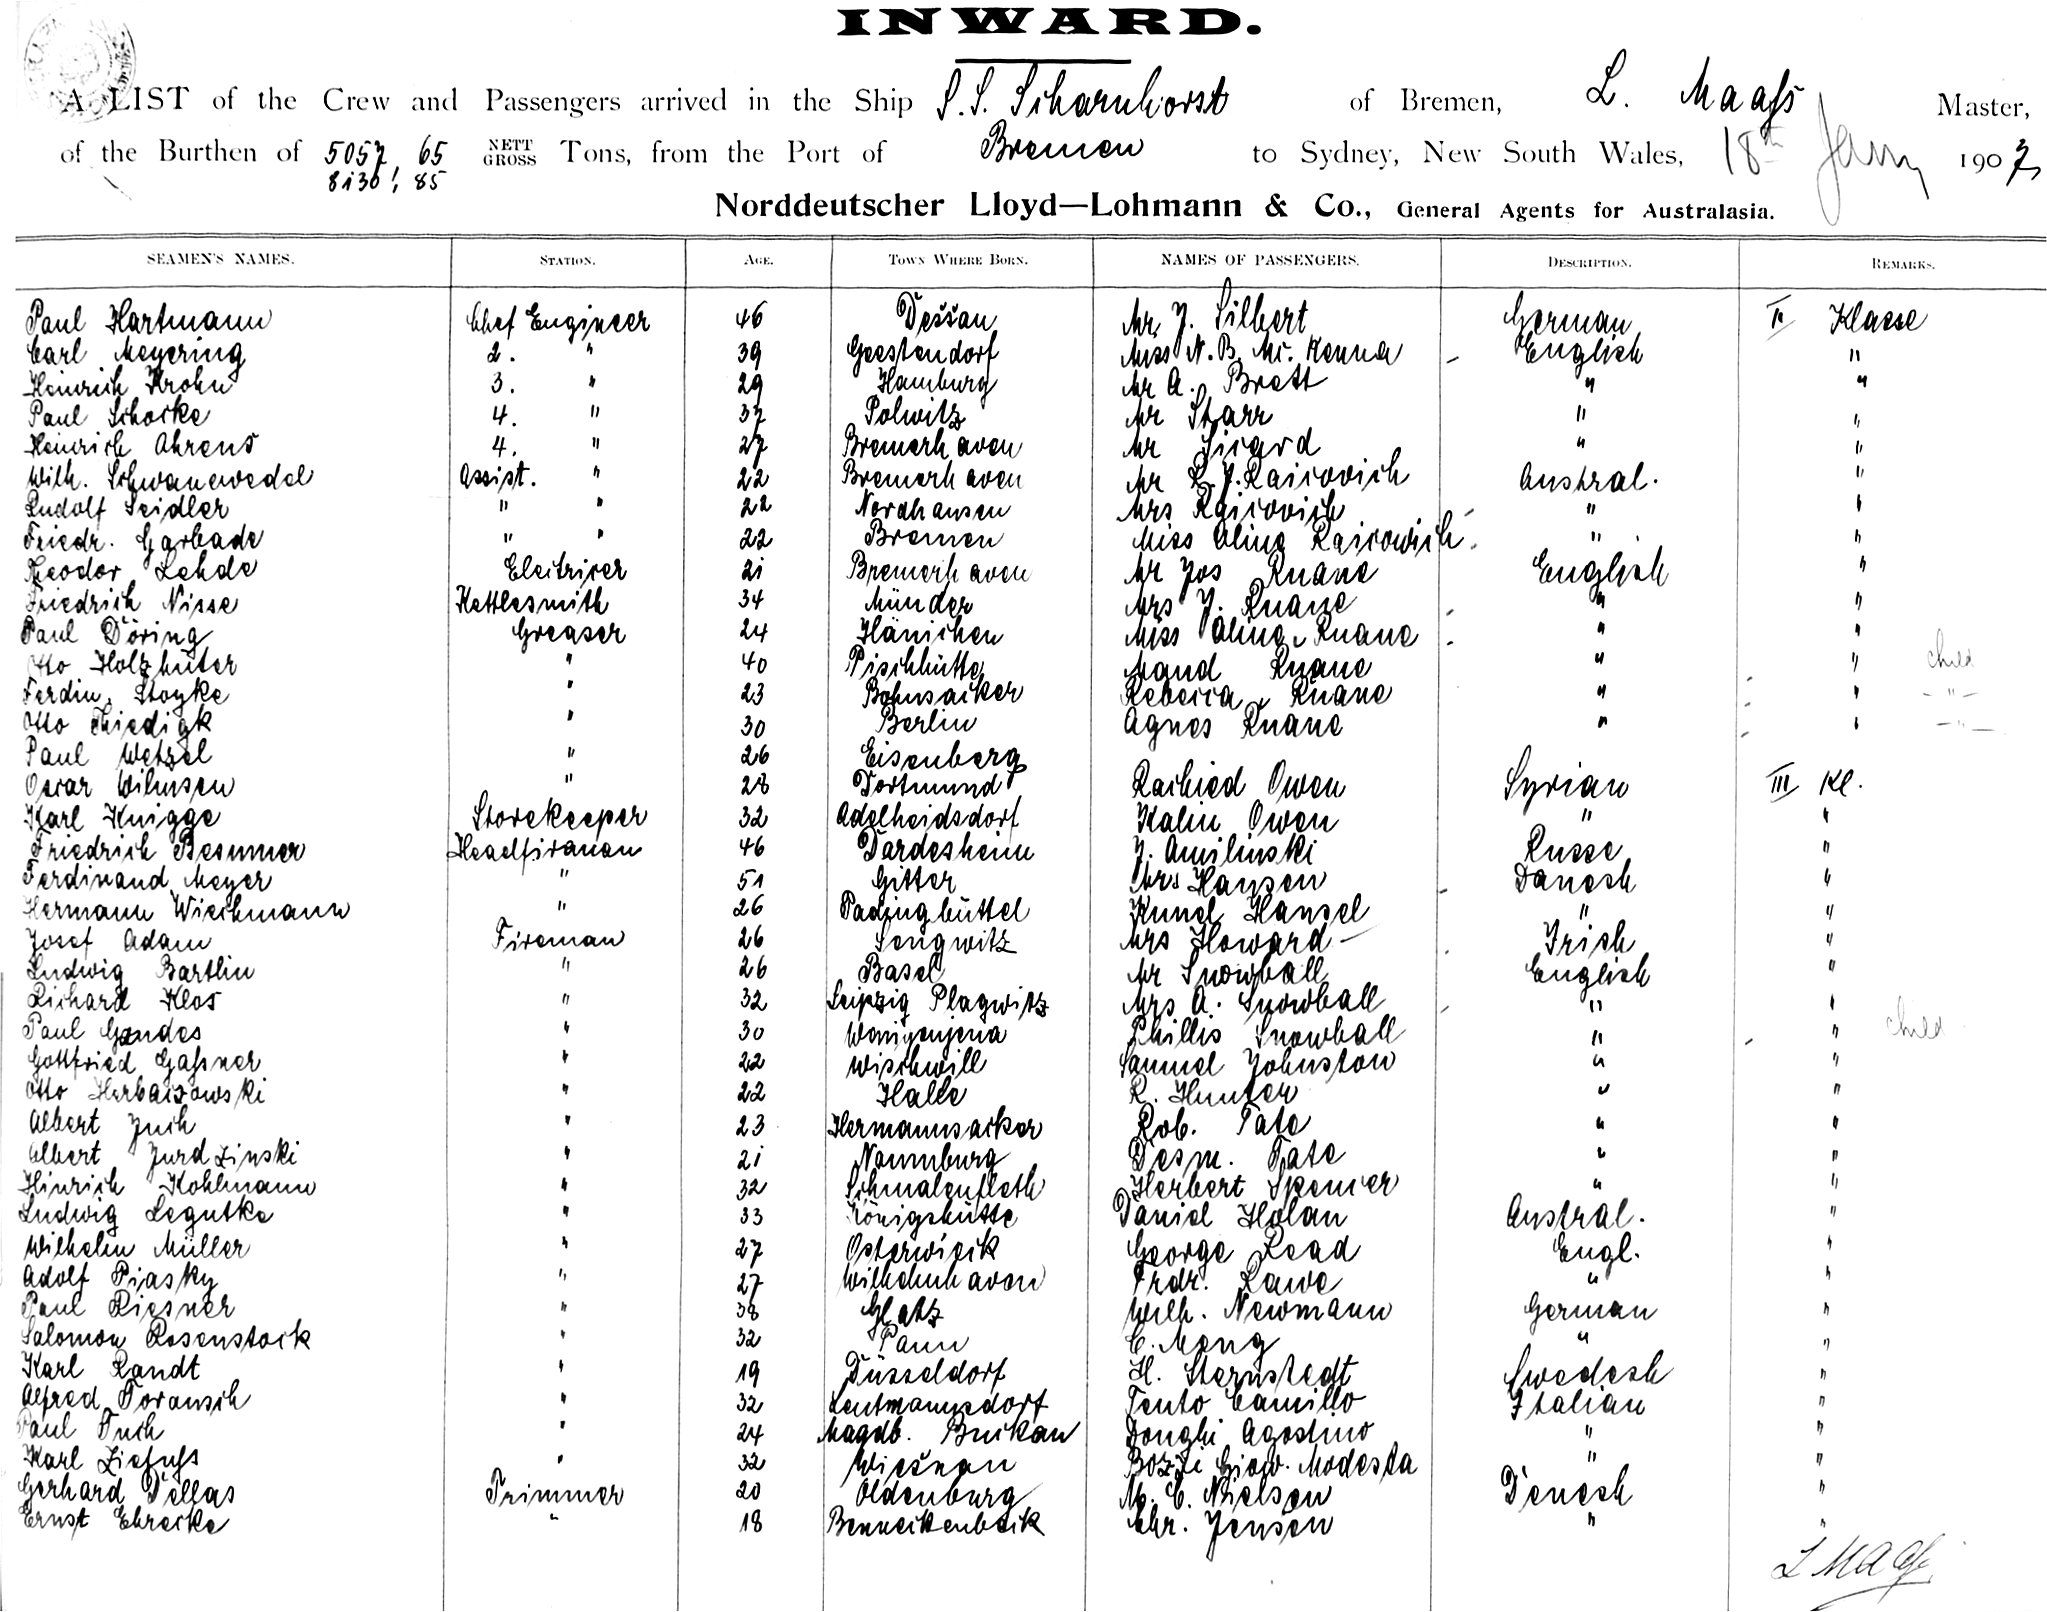 INWARD.
A LIST of the Crew and Passengers arrived in the Ship S.S. Scharnhorst of Bremen, L. Maaſs Master,
of the Burthen of 5057,65 NETT Tons, from the Port of Bremen to Sydney, New South Wales, 18th Jany 1907
8130,85 GROSS
Norddeutscher Lloyd—Lohmann & Co., General Agents for Australasia.
SEAMEN'S NAMES. STATION. AGE. TOWN WHERE BORN. NAMES OF PASSENGERS. DESCRIPTION. REMARKS.
Paul Hartmann Chef Engineer 46 Dessau Mr. J. Silbert German II Klasse
Carl Meyering 2. " 39 Geestendorf Miss N. B. Mc. Kenna English "
Heinrich Krohn 3. " 29 Hamburg Mr A. Brett " "
Paul Schocke 4. " 37 Polwitz Mr Starr " "
Heinrich Ahrens 4. " 27 Bremerhaven Mr Sicard " "
Wilh. Schwanewedel Assist. " 22 Bremerhaven Mr L. J. Raicovich Austral. "
Rudolf Seidler " " 22 Nordhausen Mrs Raicovich " "
Friedr. Garbade " " 22 Bremen Miss Aline Raicowich " "
Theodor Lehde Electricer 21 Bremerhaven Mr Jos Ruane English "
Friedrich Nisse Kettlesmith 34 Münder Mrs J. Ruane " "
Paul Döring Greaser 24 Hänichen Miss Aline Ruane " "
Otto Holzhüter " 40 Pischhütte Maud Ruane " " child
Ferdin. Stoyke " 23 Bohnsacker Rebecca Ruane " " "
Otto Thiedigk " 30 Berlin Agnes Ruane " " "
Paul Wetzel " 26 Eisenberg
Oscar Wilmsen " 28 Dortmund Rachied Owen Syrian III Kl.
Karl Knigge Storekeeper 32 Adelheidsdorf Kalin Owen " "
Friedrich Besmmer Headfireman 46 Dardesheim J. Amilinski Russe "
Ferdinand Meyer " 51 Gitter Mrs Hansen Danesh "
Hermann Wiechmann " 26 Padingbüttel Kund Hansel " "
Josef Adam Fireman 26 Sengwitz Mrs Howard Irish "
Ludwig Bartlin " 26 Basel Mr Snowball English "
Richard Klos " 32 Leipzig Plagwitz Mrs A. Snowball " "
Paul Gendes " 30 Wenigenjena Phillis Snowball " " child
Gottfried Gaſsner " 22 Wischwill Samuel Johnston " "
Otto Herbaczowski " 22 Halle R. Hunter " "
Albert Juch " 23 Hermannsacker Rob. Tate " "
Albert Jurdzinski " 21 Naumburg Desm. Tate " "
Hinrich Kohlmann " 32 Schmalenfleth Herbert Spencer " "
Ludwig Legutke " 33 Königshütte Daniel Holan Austral. "
Wilhelm Müller " 27 Osterwieck George Read Engl. "
Adolf Piasky " 27 Wilhelmhaven Frdr. Rawe " "
Paul Riesner " 38 Glatz Wilh. Newmann German "
Salomon Rosenstock " 32 Pann C. Meng " "
Karl Randt " 19 Düsseldorf H. Sternstedt Swedesh "
Alfred Toransch " 32 Leutmannsdorf Tento Camillo Italian "
Paul Tuch " 24 Magdb. Buckau Donghi Agostino " "
Karl Ziefuſs " 32 Wiesnau Bozzi Giov. Modesta " "
Gerhard Dellas Trimmer 20 Oldenburg M. C. Nielsen Denesh "
Ernst Ehrecke " 18 Benneckenbeck Chr. Jensen " "
L Maaſs